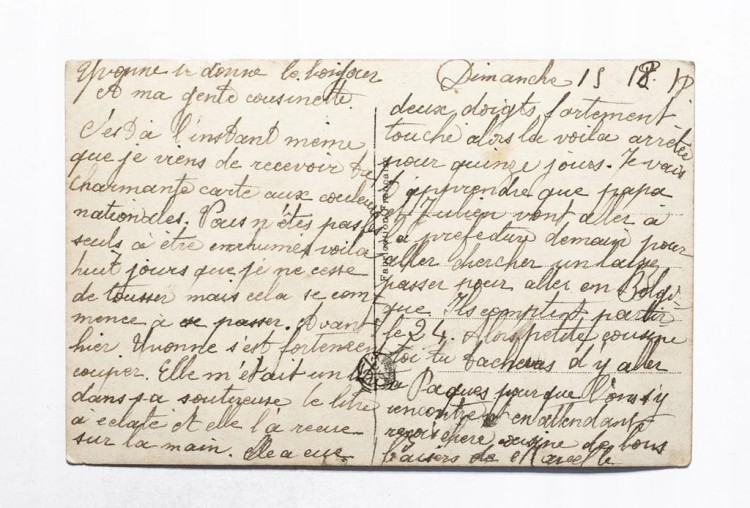 Yvonne te donne le bonjour
Dimanche 15
A ma gente cousinette.
C'est à l'instant même
que je viens de recevoir ta
charmante carte aux couleurs
nationales. Vous n'êtes pas les
seuls à être enrhumés voila
huit jours que je ne cesse
de tousser mais cela se com
mence à se passer. Avant
hier Yvonne s'est fortement
couper. Elle m'était un
dans sa soutireuse le litre
à éclaté et elle l'a recue
sur la main. Elle a eue
deux doigts fortement
touché alors la voila arrêtée
pour quinze jours. Je vais
t'apprendre que papa
et Julien vont aller à
la prefecture demain pour
aller chercher un laisse
passer pour aller en Belgi-
que. Ils comptent partir
le 24. Alors petite cousine
toi tu tacheras d'y aller
a Paques pour que l'on s'y
rencontre et en attendant
reçois chere cousine de bons
baisers de
Fabrication Française